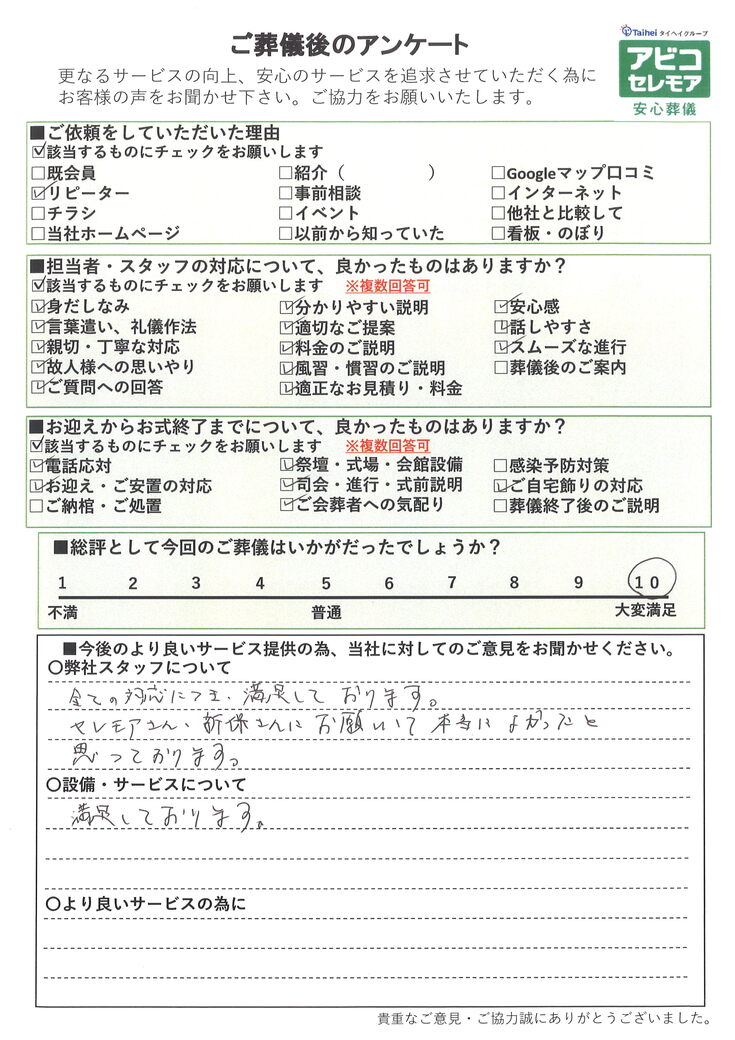 ご葬儀後のアンケート
Taihei タイヘイグループ
アビコ
セレモア
安心葬儀
更なるサービスの向上、安心のサービスを追求させていただく為に
お客様の声をお聞かせ下さい。ご協力をお願いいたします。
■ご依頼をしていただいた理由
☑該当するものにチェックをお願いします
□既会員 □紹介（ ） □Googleマップ口コミ
☑リピーター □事前相談 □インターネット
□チラシ □イベント □他社と比較して
□当社ホームページ □以前から知っていた □看板・のぼり
■担当者・スタッフの対応について、良かったものはありますか？
☑該当するものにチェックをお願いします ※複数回答可
☑身だしなみ ☑分かりやすい説明 ☑安心感
☑言葉遣い、礼儀作法 ☑適切なご提案 ☑話しやすさ
☑親切・丁寧な対応 ☑料金のご説明 ☑スムーズな進行
☑故人様への思いやり ☑風習・慣習のご説明 □葬儀後のご案内
☑ご質問への回答 ☑適正なお見積り・料金
■お迎えからお式終了までについて、良かったものはありますか？
☑該当するものにチェックをお願いします ※複数回答可
☑電話応対 ☑祭壇・式場・会館設備 □感染予防対策
☑お迎え・ご安置の対応 ☑司会・進行・式前説明 ☑ご自宅飾りの対応
□ご納棺・ご処置 ☑ご会葬者への気配り □葬儀終了後のご説明
■総評として今回のご葬儀はいかがだったでしょうか？
1 2 3 4 5 6 7 8 9 10
不満 普通 大変満足
■今後のより良いサービス提供の為、当社に対してのご意見をお聞かせください。
〇弊社スタッフについて
全ての対応につき、満足しております。
セレモアさん、新保さんにお願いして本当によかったと
思っております。
〇設備・サービスについて
満足しております。
〇より良いサービスの為に
貴重なご意見・ご協力誠にありがとうございました。